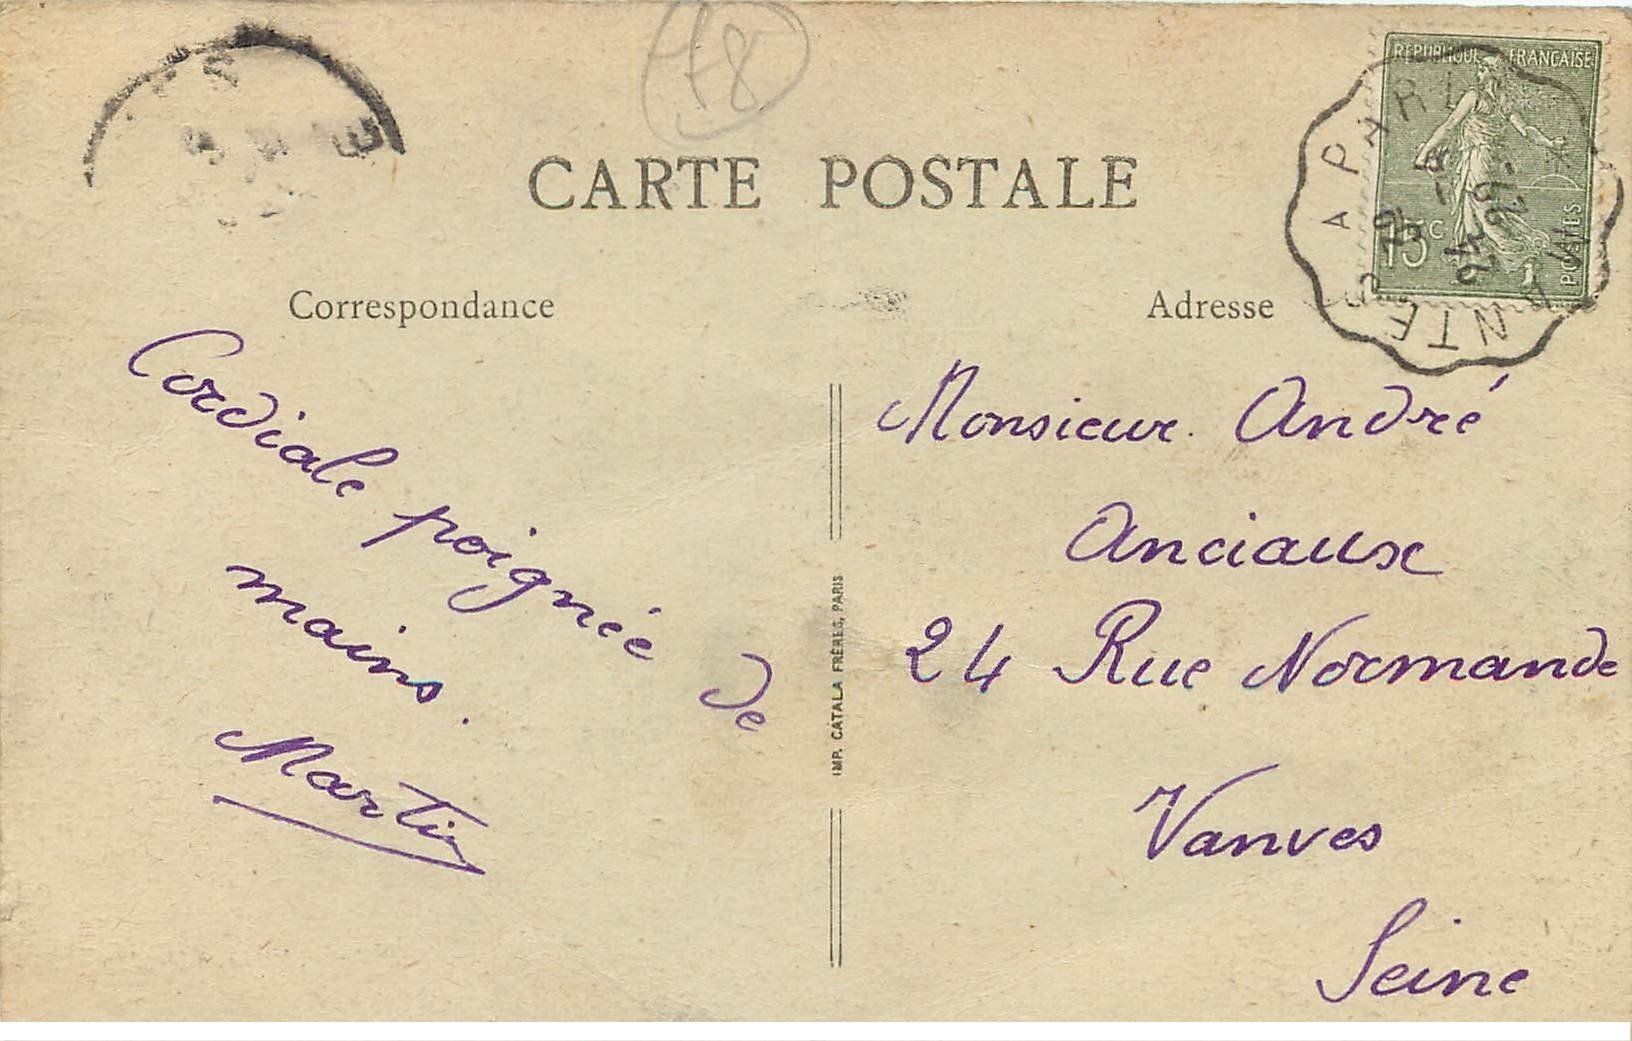 78
CARTE POSTALE
REPUBLIQUE FRANCAISE
15c
POSTES
MANTES A PARIS
Correspondance
Cordiale poignée de
mains.
Martin
IMP. CATALA FRÈRES, PARIS
Adresse
Monsieur André
Anciaux
24 Rue Normande
Vanves
Seine